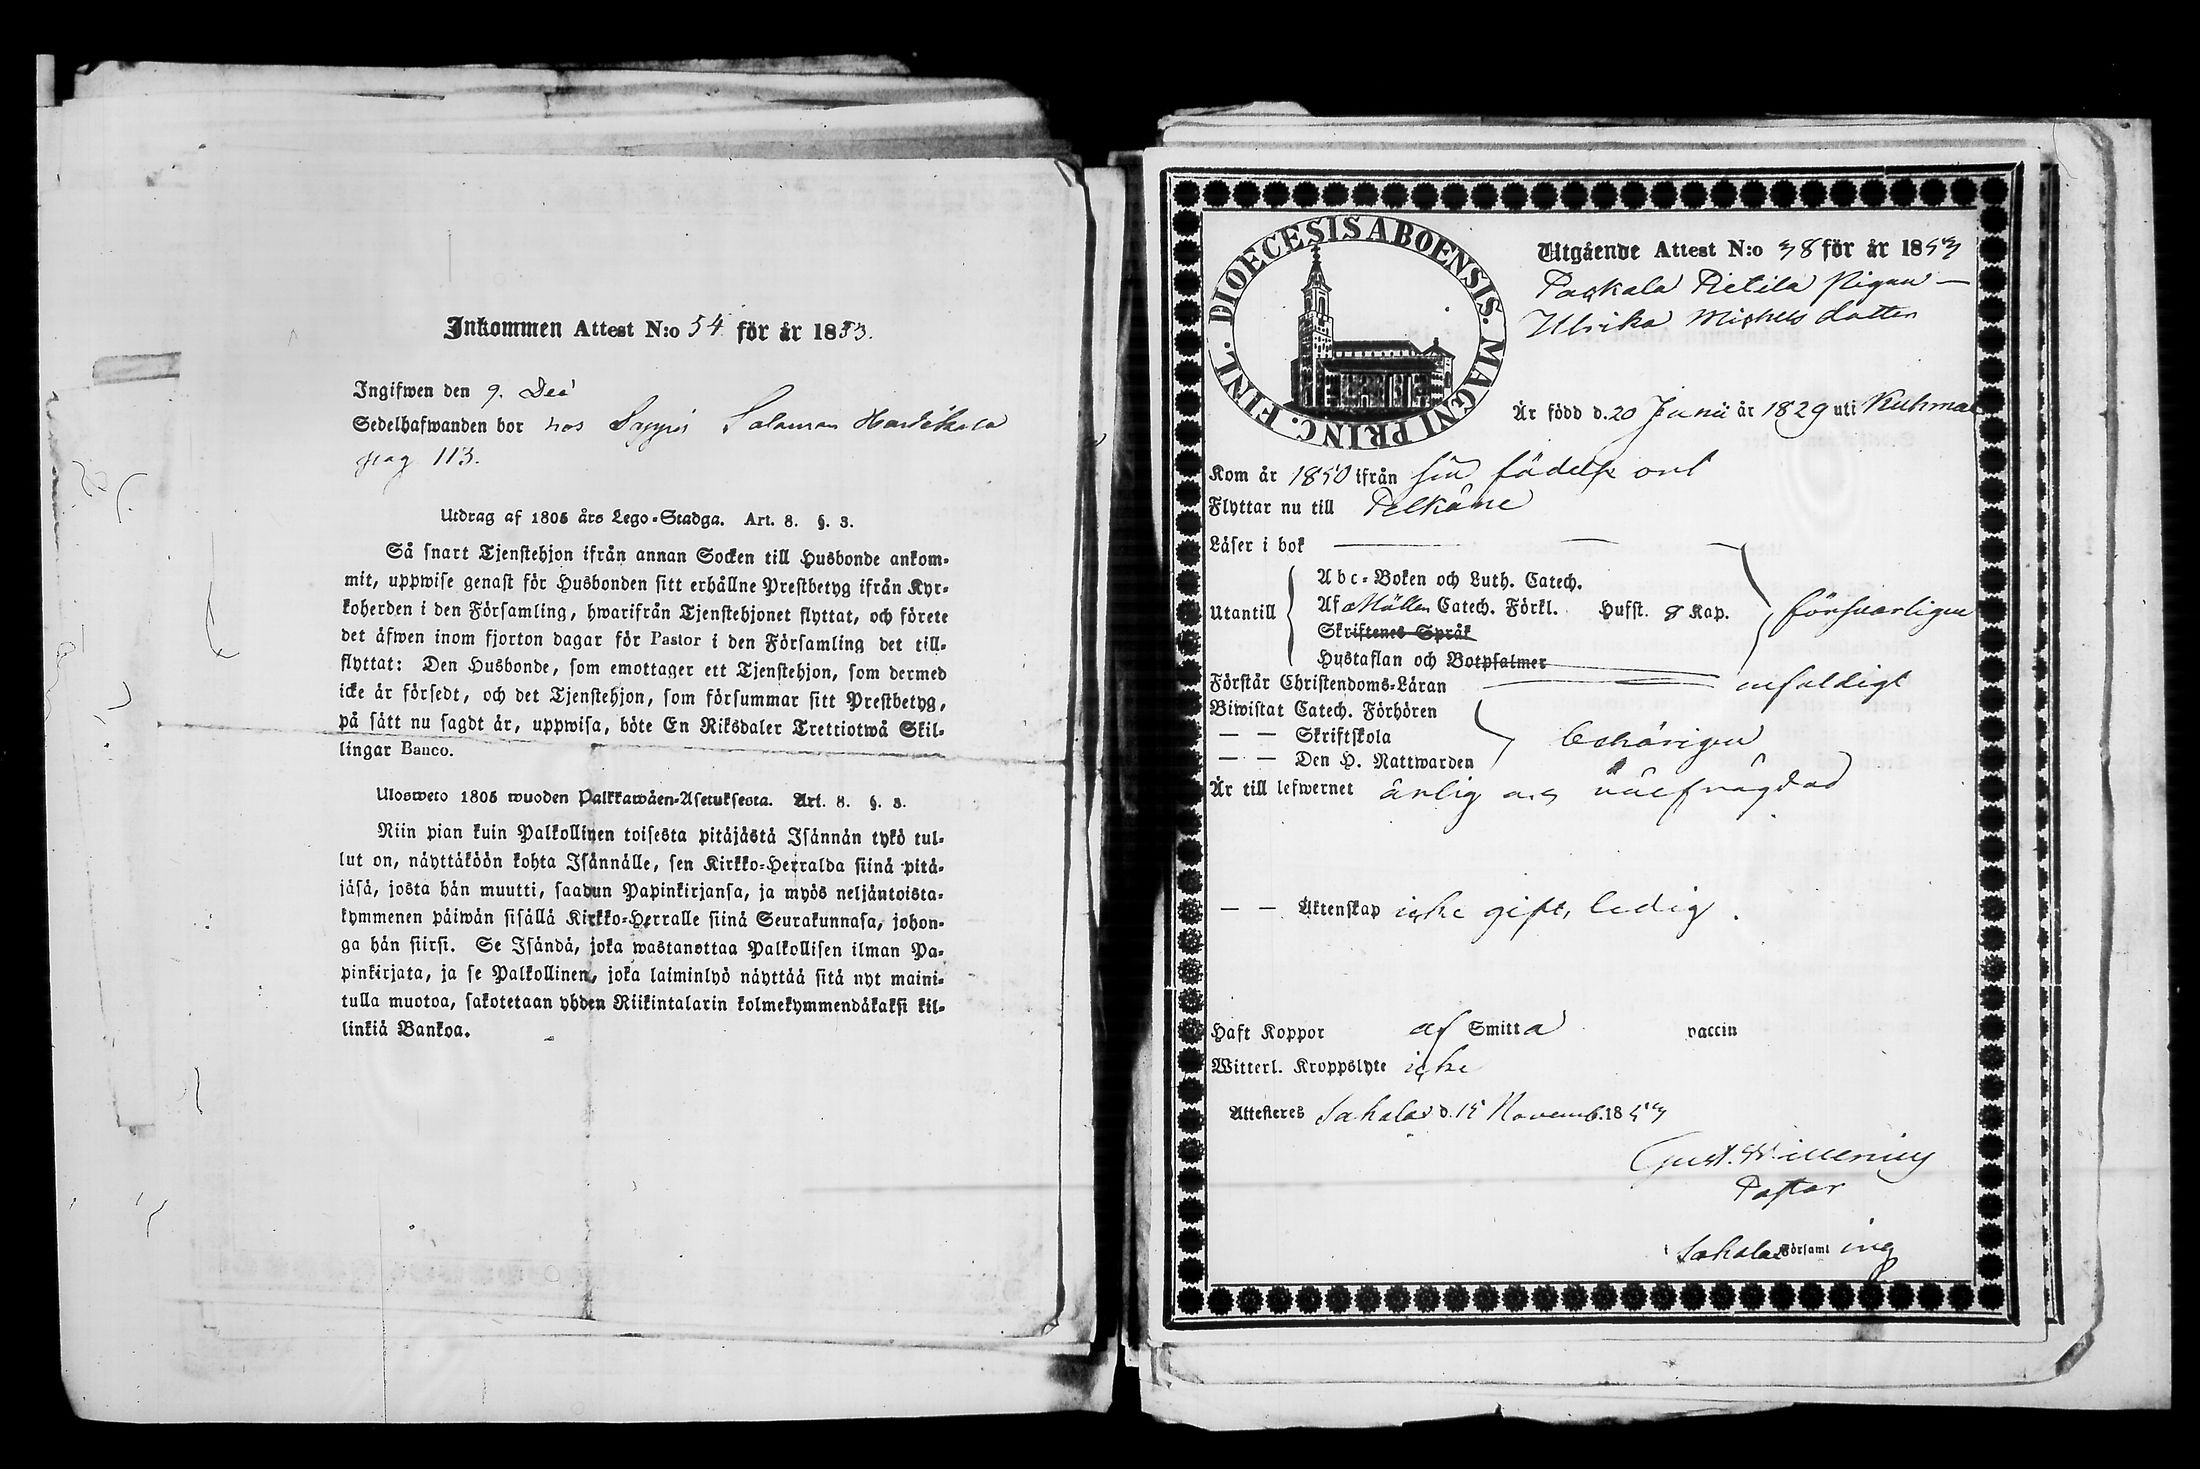 Inkommen Attest N:o 54 för år 1853.
Ingifwen den 9. Dec
Sedelhafwanden bor hos Salomon
pag 113.
Utdrag af 1805 års Lego-Stadga. Art. 8. §. 3.
Så snart Tjenstehjon ifrån annan Socken till Husbonde ankom-
mit, uppwise genast för Husbonden sitt erhållne Prestbetyg ifrån Kyr-
koherden i den Församling, hwarifrån Tjenstehjonet flyttat, och förete
det äfwen inom fjorton dagar för Pastor i den Församling det till-
flyttat: Den Husbonde, som emottager ett Tjenstehjon, som dermed
icke är försedt, och det Tjenstehjon, som försummar sitt Prestbetyg,
på sätt nu sagdt är, uppwisa, böte En Riksdaler Trettiotwå Skil-
lingar Banco.
Ulosweto 1805 wuoden Palkkawäen-Asetuksesta. Art. 8. §. 3.
Niin pian kuin Palkollinen toisesta pitäjästä Isännän tykö tul-
lut on, näyttäköön kohta Isännälle, sen Kirkko-Herralda siinä pitä-
jäsä, josta hän muutti, saadun Papinkirjansa, ja myös neljäntoista-
kymmenen päiwän sisällä Kirkko-Herralle siinä Seurakunnasa, johon-
ga hän siirsi. Se Isändä, joka wastanottaa Palkollisen ilman Pa-
pinkirjata, ja se Palkollinen, joka laiminlyö näyttää sitä nyt maini-
tulla muotoa, sakotetaan yhden Riikintalarin kolmekymmendäkaksi kil-
linkiä Bankoa.
DIOECESIS ABOENSIS. MAGNI PRINC. FINL.
Utgående Attest N:o 38 för år 1853
Paskala Pietilä Pigan
Ulrika Michels dotter
Är född d. 20 Junii år 1829 uti Kuhmal
Kom år 1850 ifrån sin födelse ort
Flyttar nu till Pelkäne
Läser i bok
Utantill
Abc-Boken och Luth. Catech.
Af Möllers Catech. Förkl. Husst. 8 Kap. försvarligen
Skriftenes Språk
Hustaflan och Botpsalmer
Förstår Christendoms-Läran enfaldigt
Biwistat Catech. Förhören
— — Skriftskola behörigen
— — Den H. Nattwarden
Är till lefwernet ärlig och välfrägdad
— — Äktenskap icke gift, ledig.
Haft Koppor af Smitta vaccin
Witterl. Kroppslyte icke
Attesteres Sahalax d. 15 Novemb. 1853
Gust. Willenius
Pastor
i Sahalax Församl ing